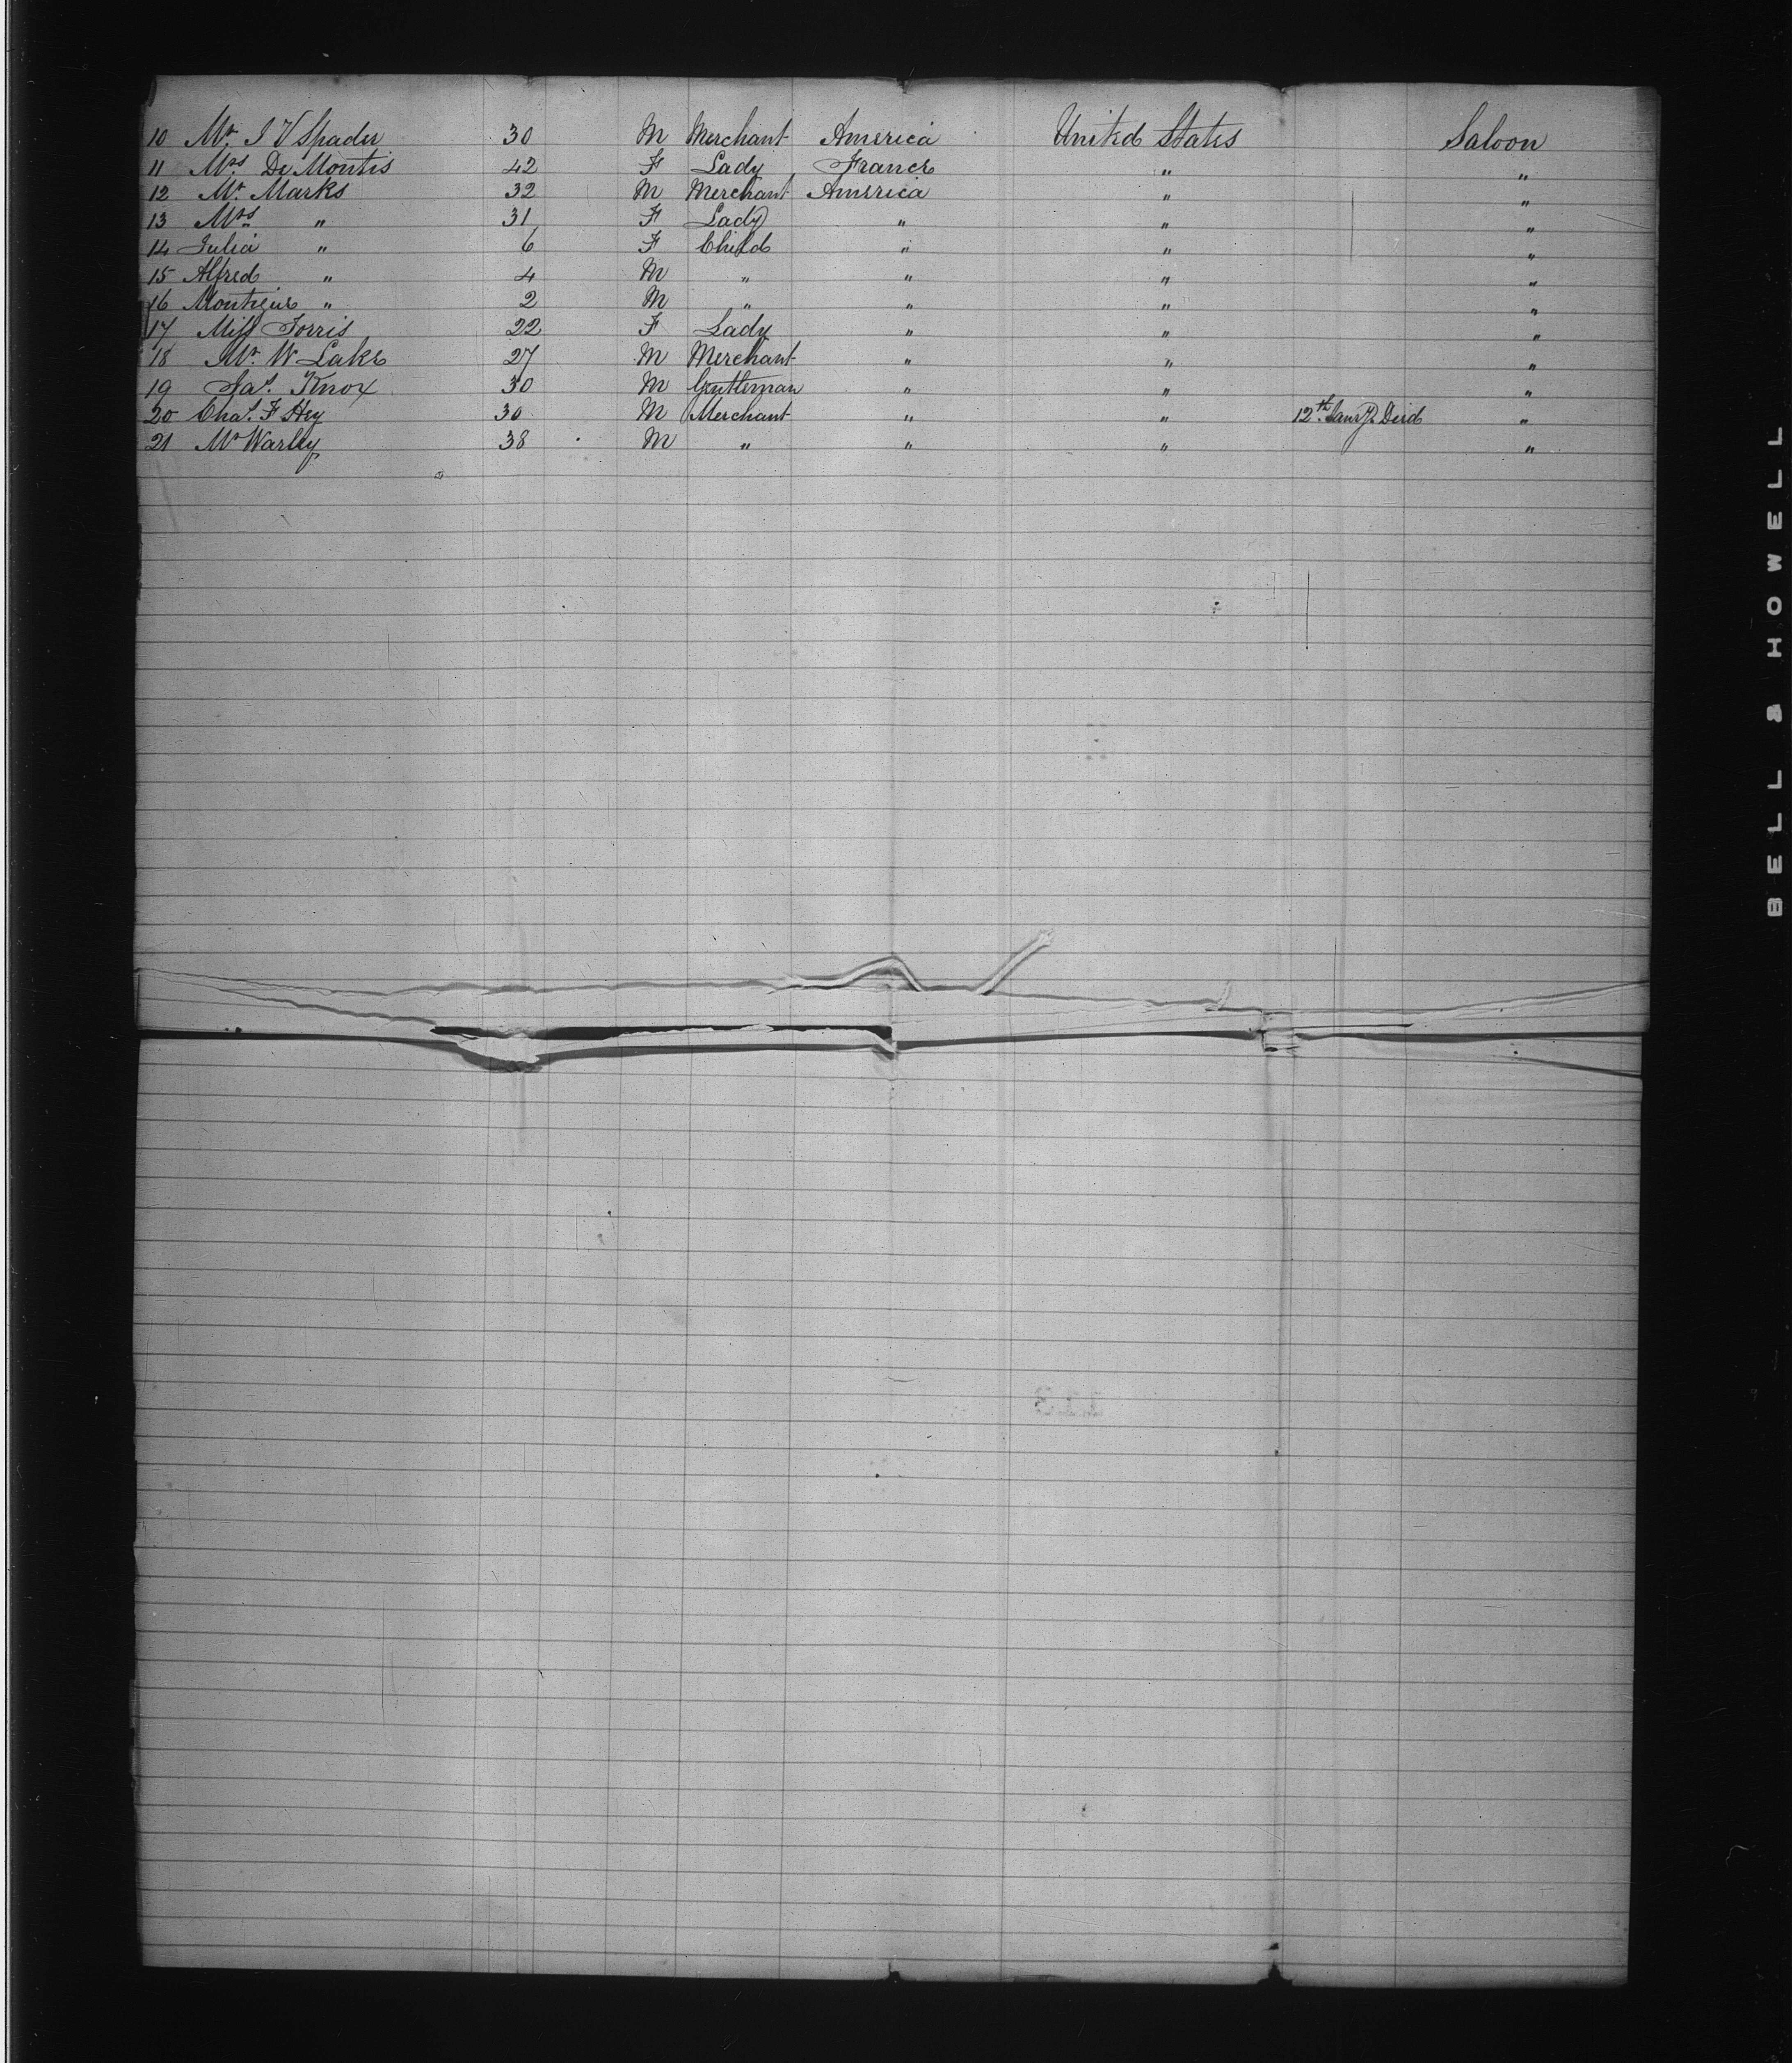 10 Mr. J V Spader 30 M Merchant America United States Saloon
11 Mrs. De Montis 42 F Lady France " "
12 Mr. Marks 32 M Merchant America " "
13 Mrs " 31 F Lady " " "
14 Julia " 6 F Child " " "
15 Alfred " 4 M " " " "
16 " 2 M " " " "
17 Miss Torris 22 F Lady " " "
18 Mr. W Lake 27 M Merchant " " "
19 Jas. Knox 30 M Gentleman " " "
20 Chas. F Hey 30 M Merchant " " 12th Jany. Died "
21 Mr Warley 38 M " " " "
BELL & HOWELL